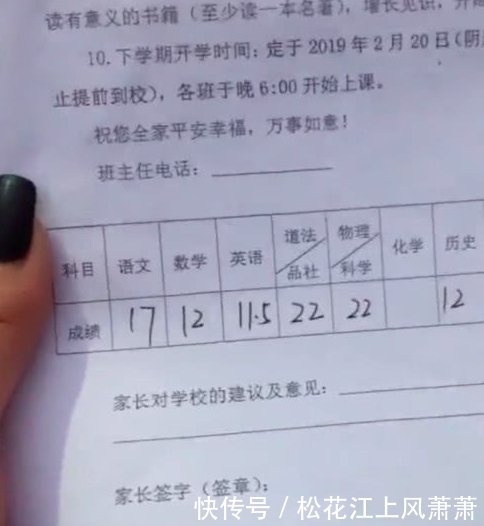 读有意义的书籍（至少读一本名著），增长见识，开
10.下学期开学时间：定于2019年2月20日（阴
止提前到校），各班于晚6:00开始上课。
祝您全家平安幸福，万事如意！
班主任电话：
科目 语文 数学 英语 道法/品社 物理/科学 化学 历史
成绩 17 12 11.5 22 22 12
家长对学校的建议及意见：
家长签字（签章）：
快传号／松花江上风萧萧